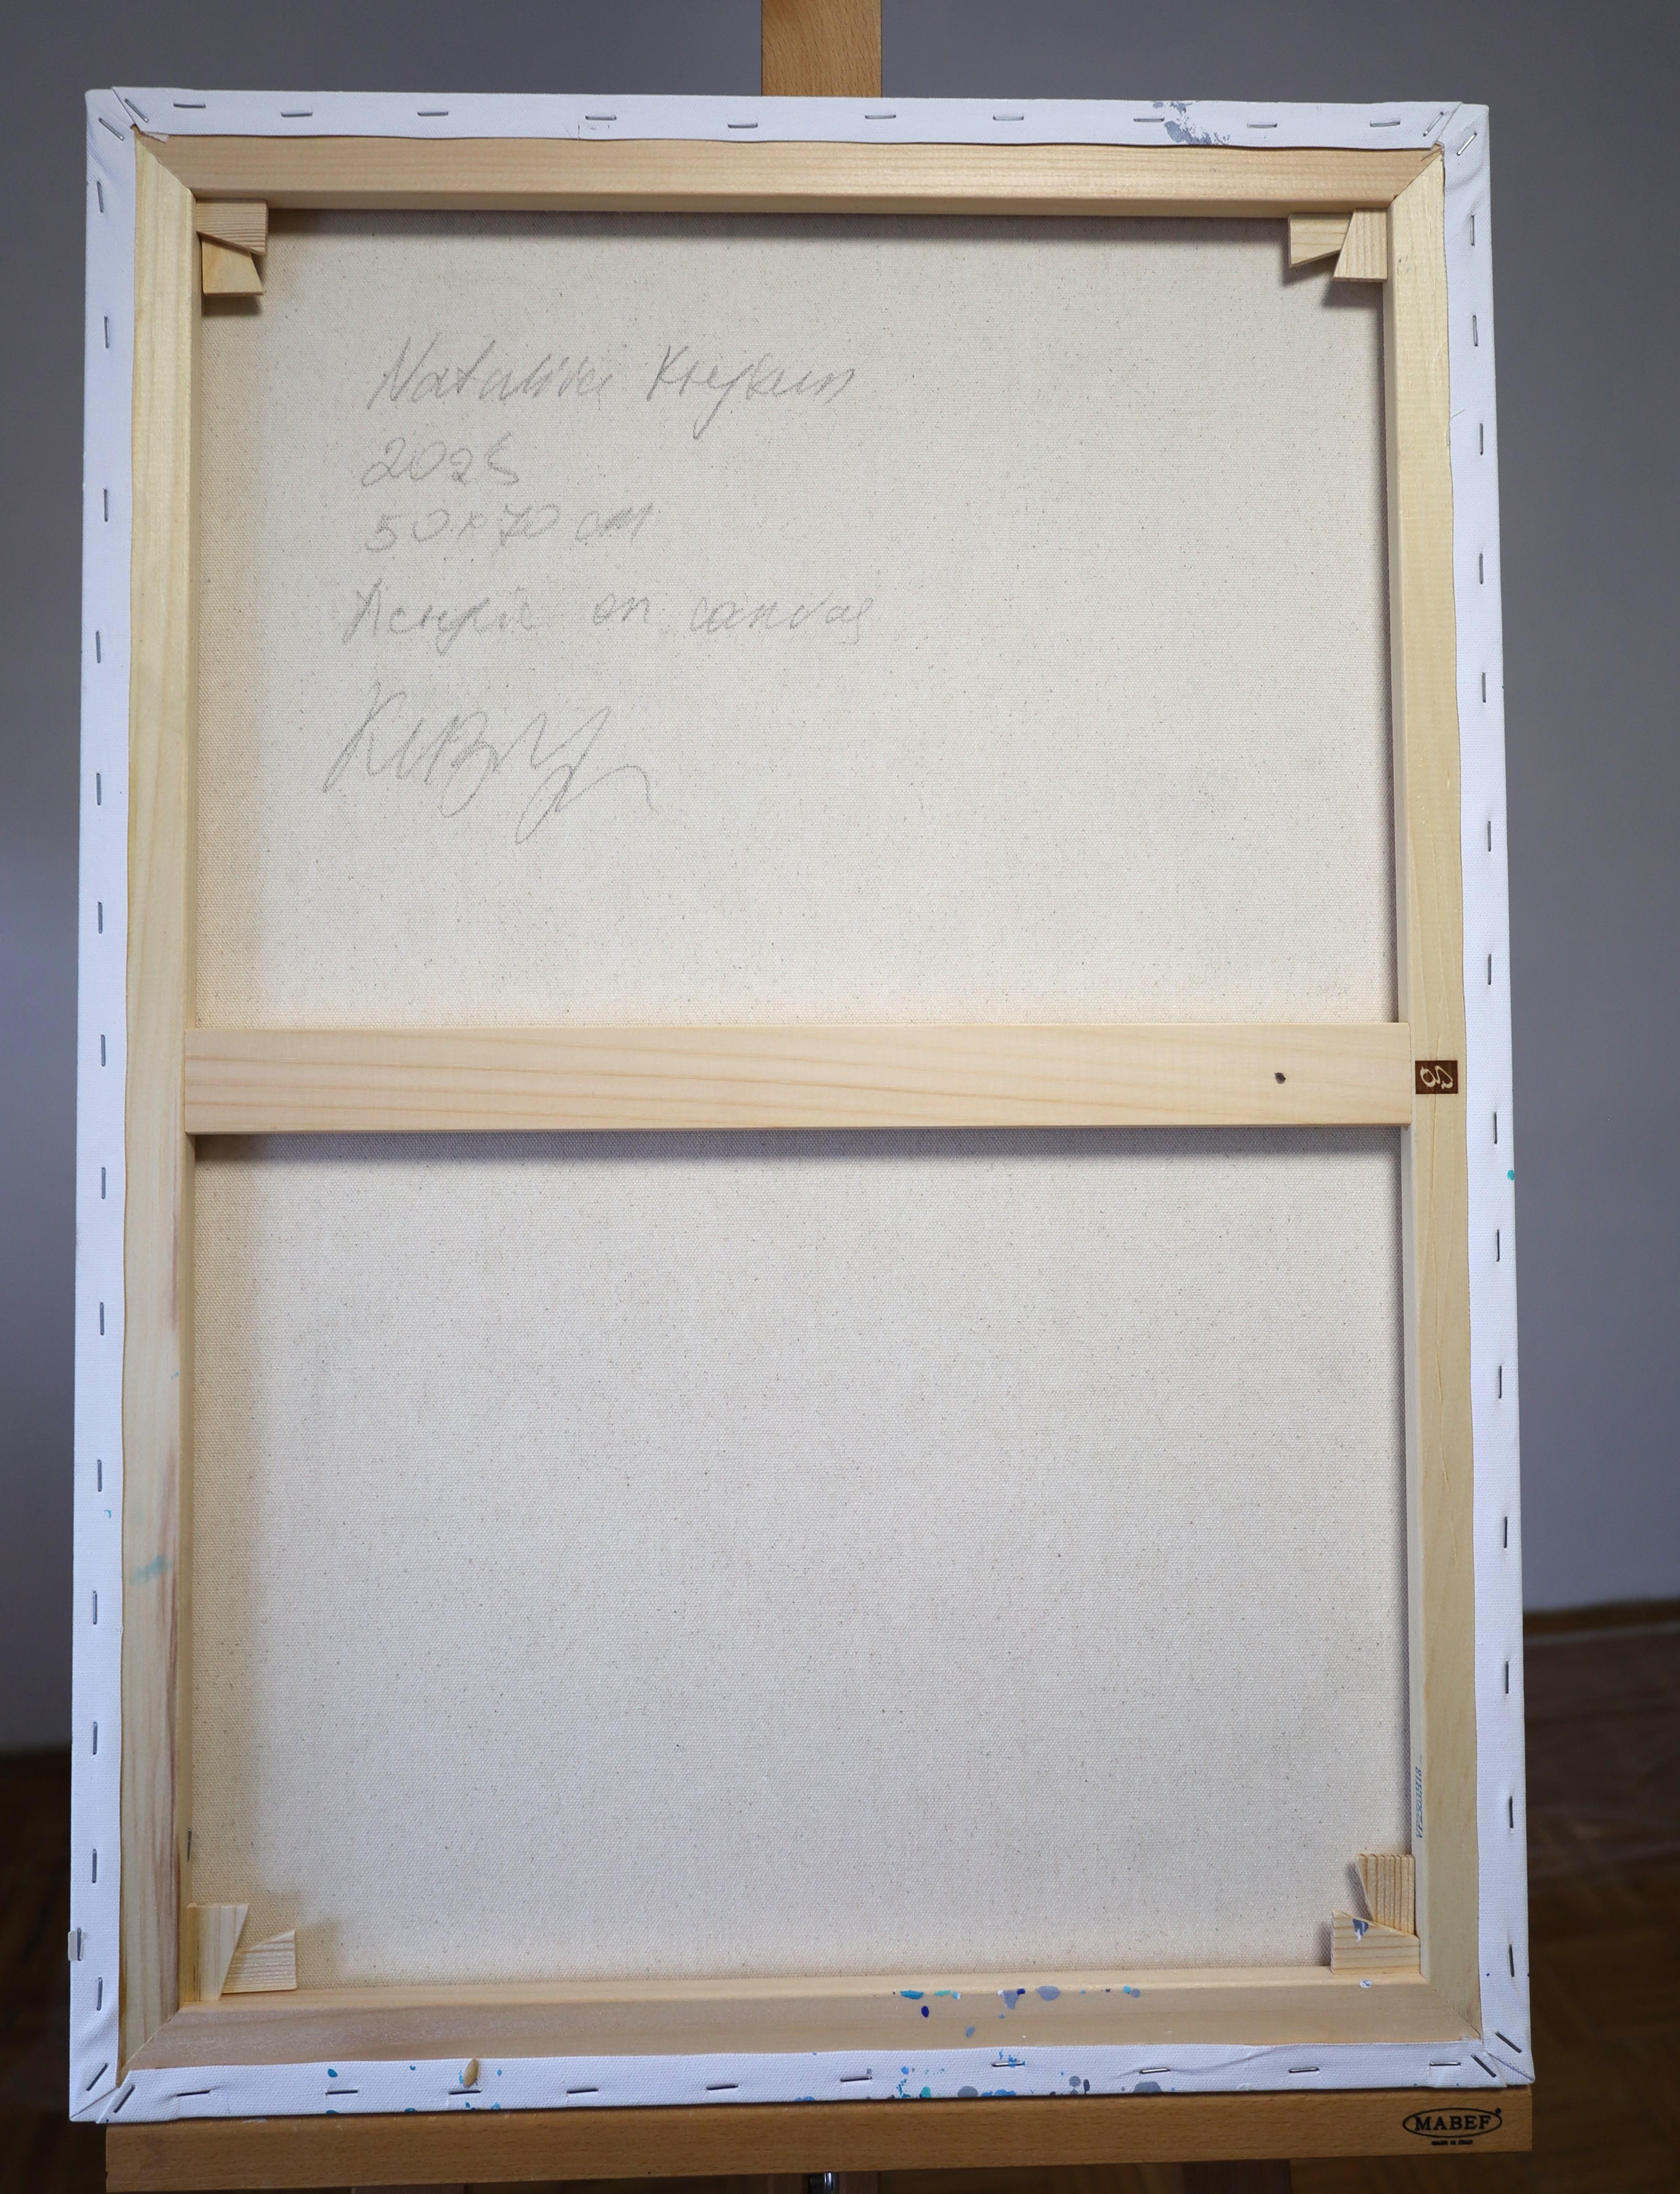 Nataliia Krejkun
2025
50x70 cm
Acrylic on canvas
MABEF
MADE IN ITALY